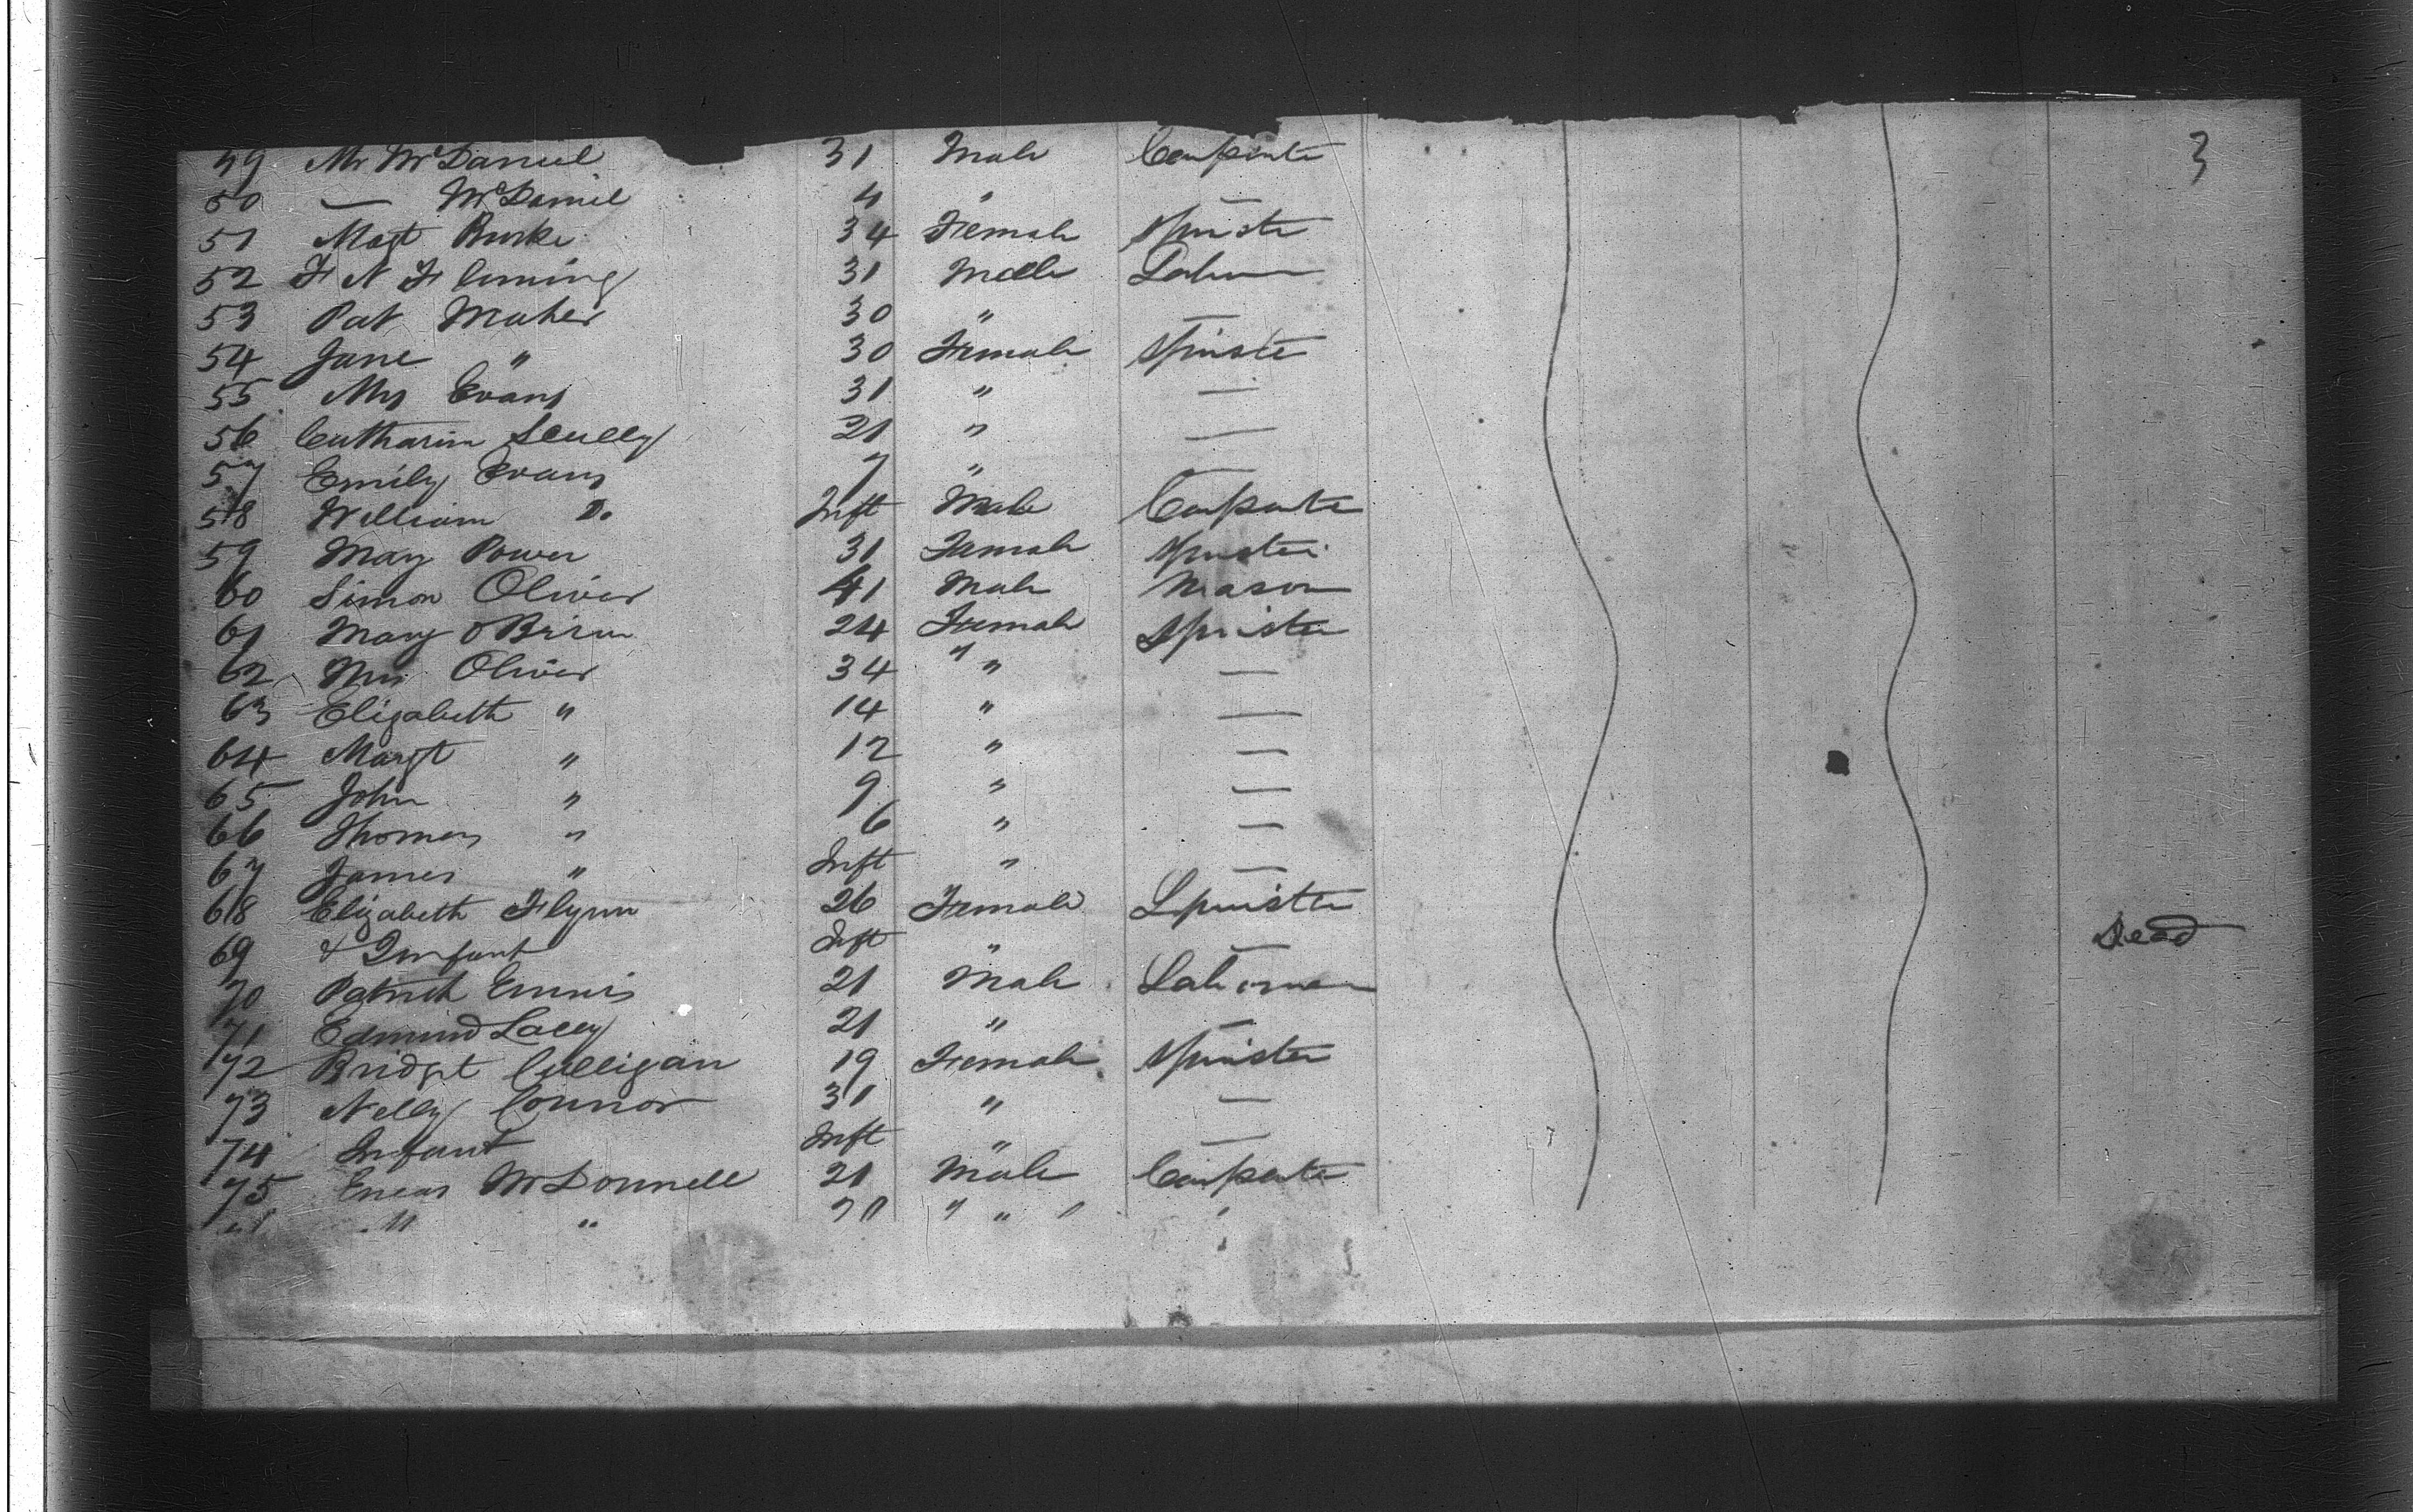 3
49 Mr McDaniel 31 Male Carpenter
50 — McDaniel 4 " —
51 Magt Burke 34 Female Spinster
52 F N Fleming 31 Male Labourer
53 Pat Maher 30 " —
54 Jane " 30 Female Spinster
55 Mrs Evans 31 " —
56 Catharin Scully 21 " —
57 Emily Evans 7 " —
58 William Do Inft Male Carpenter
59 Mary Power 31 Female Spinster
60 Simon Oliver 41 Male Mason
61 Mary O Brien 24 Female Spinster
62 Mrs Oliver 34 " " —
63 Elizabeth " 14 " —
64 Margt " 12 " —
65 John " 9 " —
66 Thomas " 6 " —
67 James " Inft " —
68 Elizabeth Flynn 26 Female Spinster
69 & Infant Inft " — Dead
70 Patrick Ennis 21 Male Labourer
71 Edmund Lacey 21 " —
72 Bridget Culligan 19 Female Spinster
73 Nelly Connor 31 " —
74 Infant Inft " —
75 Eneas McDonnell 21 Male Carpenter
" " "